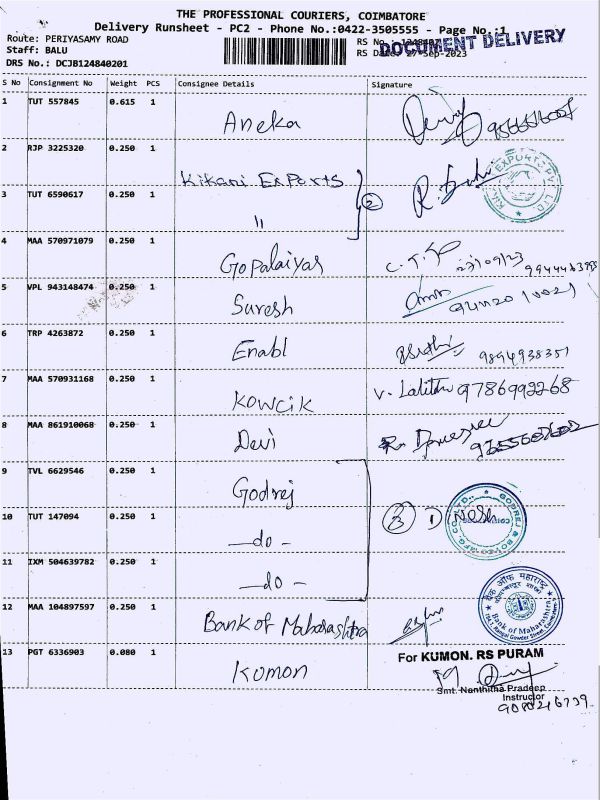 THE PROFESSIONAL COURIERS, COIMBATORE
Delivery Runsheet - PC2 - Phone No.:0422-3505555 - Page No.:1
Route: PERIYASAMY ROAD
Staff: BALU
DRS No.: DCJB124840201
RS No.:
RS Date: 27-Sep-2023
DOCUMENT DELIVERY
S No Consignment No Weight PCS Consignee Details Signature
1 TUT 557845 0.615 1 Aneka
2 RJP 3225320 0.250 1 Kikani Exports
3 TUT 6590617 0.250 1 " 2
4 MAA 570971079 0.250 1 Gopalaiyar 27/09/23
5 VPL 943148474 0.250 1 Suresh
6 TRP 4263872 0.250 1 Enabl 9894938351
7 MAA 570931168 0.250 1 Kowcik V. Lalitha 9786992268
8 MAA 861910068 0.250 1 Devi
9 TVL 6629546 0.250 1 Godrej
10 TUT 147094 0.250 1 -do- 3
11 IXM 504639782 0.250 1 -do-
12 MAA 104897597 0.250 1 Bank of Maharashtra
Bank of Maharashtra
For KUMON. RS PURAM
13 PGT 6336903 0.080 1 Kumon
Smt. Nanthitha Pradeep
Instructor